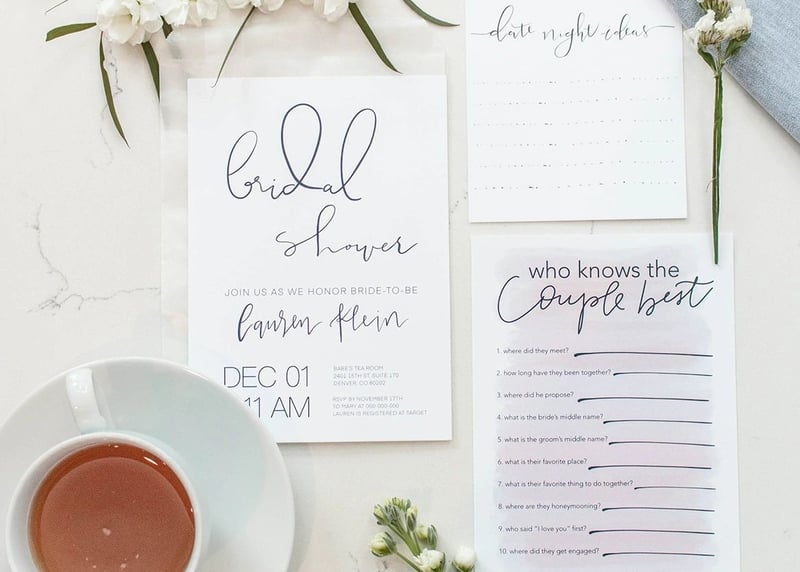 bridal
shower
JOIN US AS WE HONOR BRIDE-TO-BE
lauren klein
DEC 01
11 AM
BABE'S TEA ROOM
2401 15TH ST, SUITE 170
DENVER, CO 80202
RSVP BY NOVEMBER 17TH
TO MARY AT 000-000-000
LAUREN IS REGISTERED AT TARGET
date night ideas
who knows the
Couple best
1. where did they meet?
2. how long have they been together?
3. where did he propose?
4. what is the bride's middle name?
5. what is the groom's middle name?
6. what is their favorite place?
7. what is their favorite thing to do together?
8. where are they honeymooning?
9. who said "I love you" first?
10. where did they get engaged?